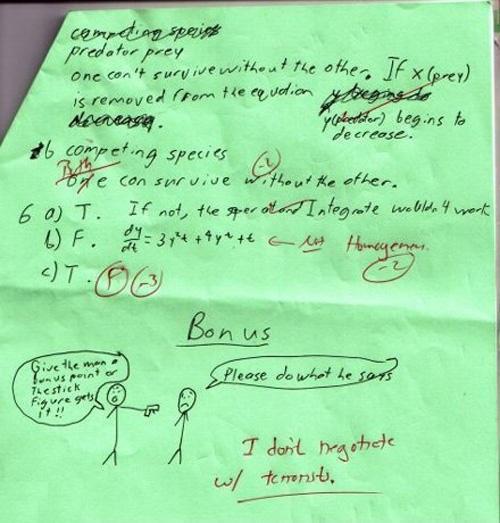 competing species
predator prey
one can't survive without the other. If x (prey)
is removed from the equation y begins to
decreasing. y(predator) begins to
decrease.
b competing species
one can survive without the other.
-2
6 a) T. If not, the and Integrate wouldn't work
b) F. dy/dt = 3y²t + 4y² + t ← not Homogeneous.
-2
c) T. F -3
Bonus
Give the man a
bonus point or
the stick
figure gets
it!!
Please do what he says
I don't negotiate
w/ terrorists.